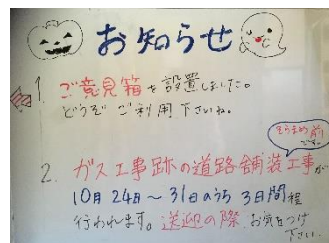 お知らせ
1. ご意見箱を設置しました。
どうぞ ご利用下さいね。
そらまめ前です。
2. ガス工事跡の道路舗装工事が
10月24日～31日のうち 3日間程
行われます。送迎の際、お気をつけ
下さい。